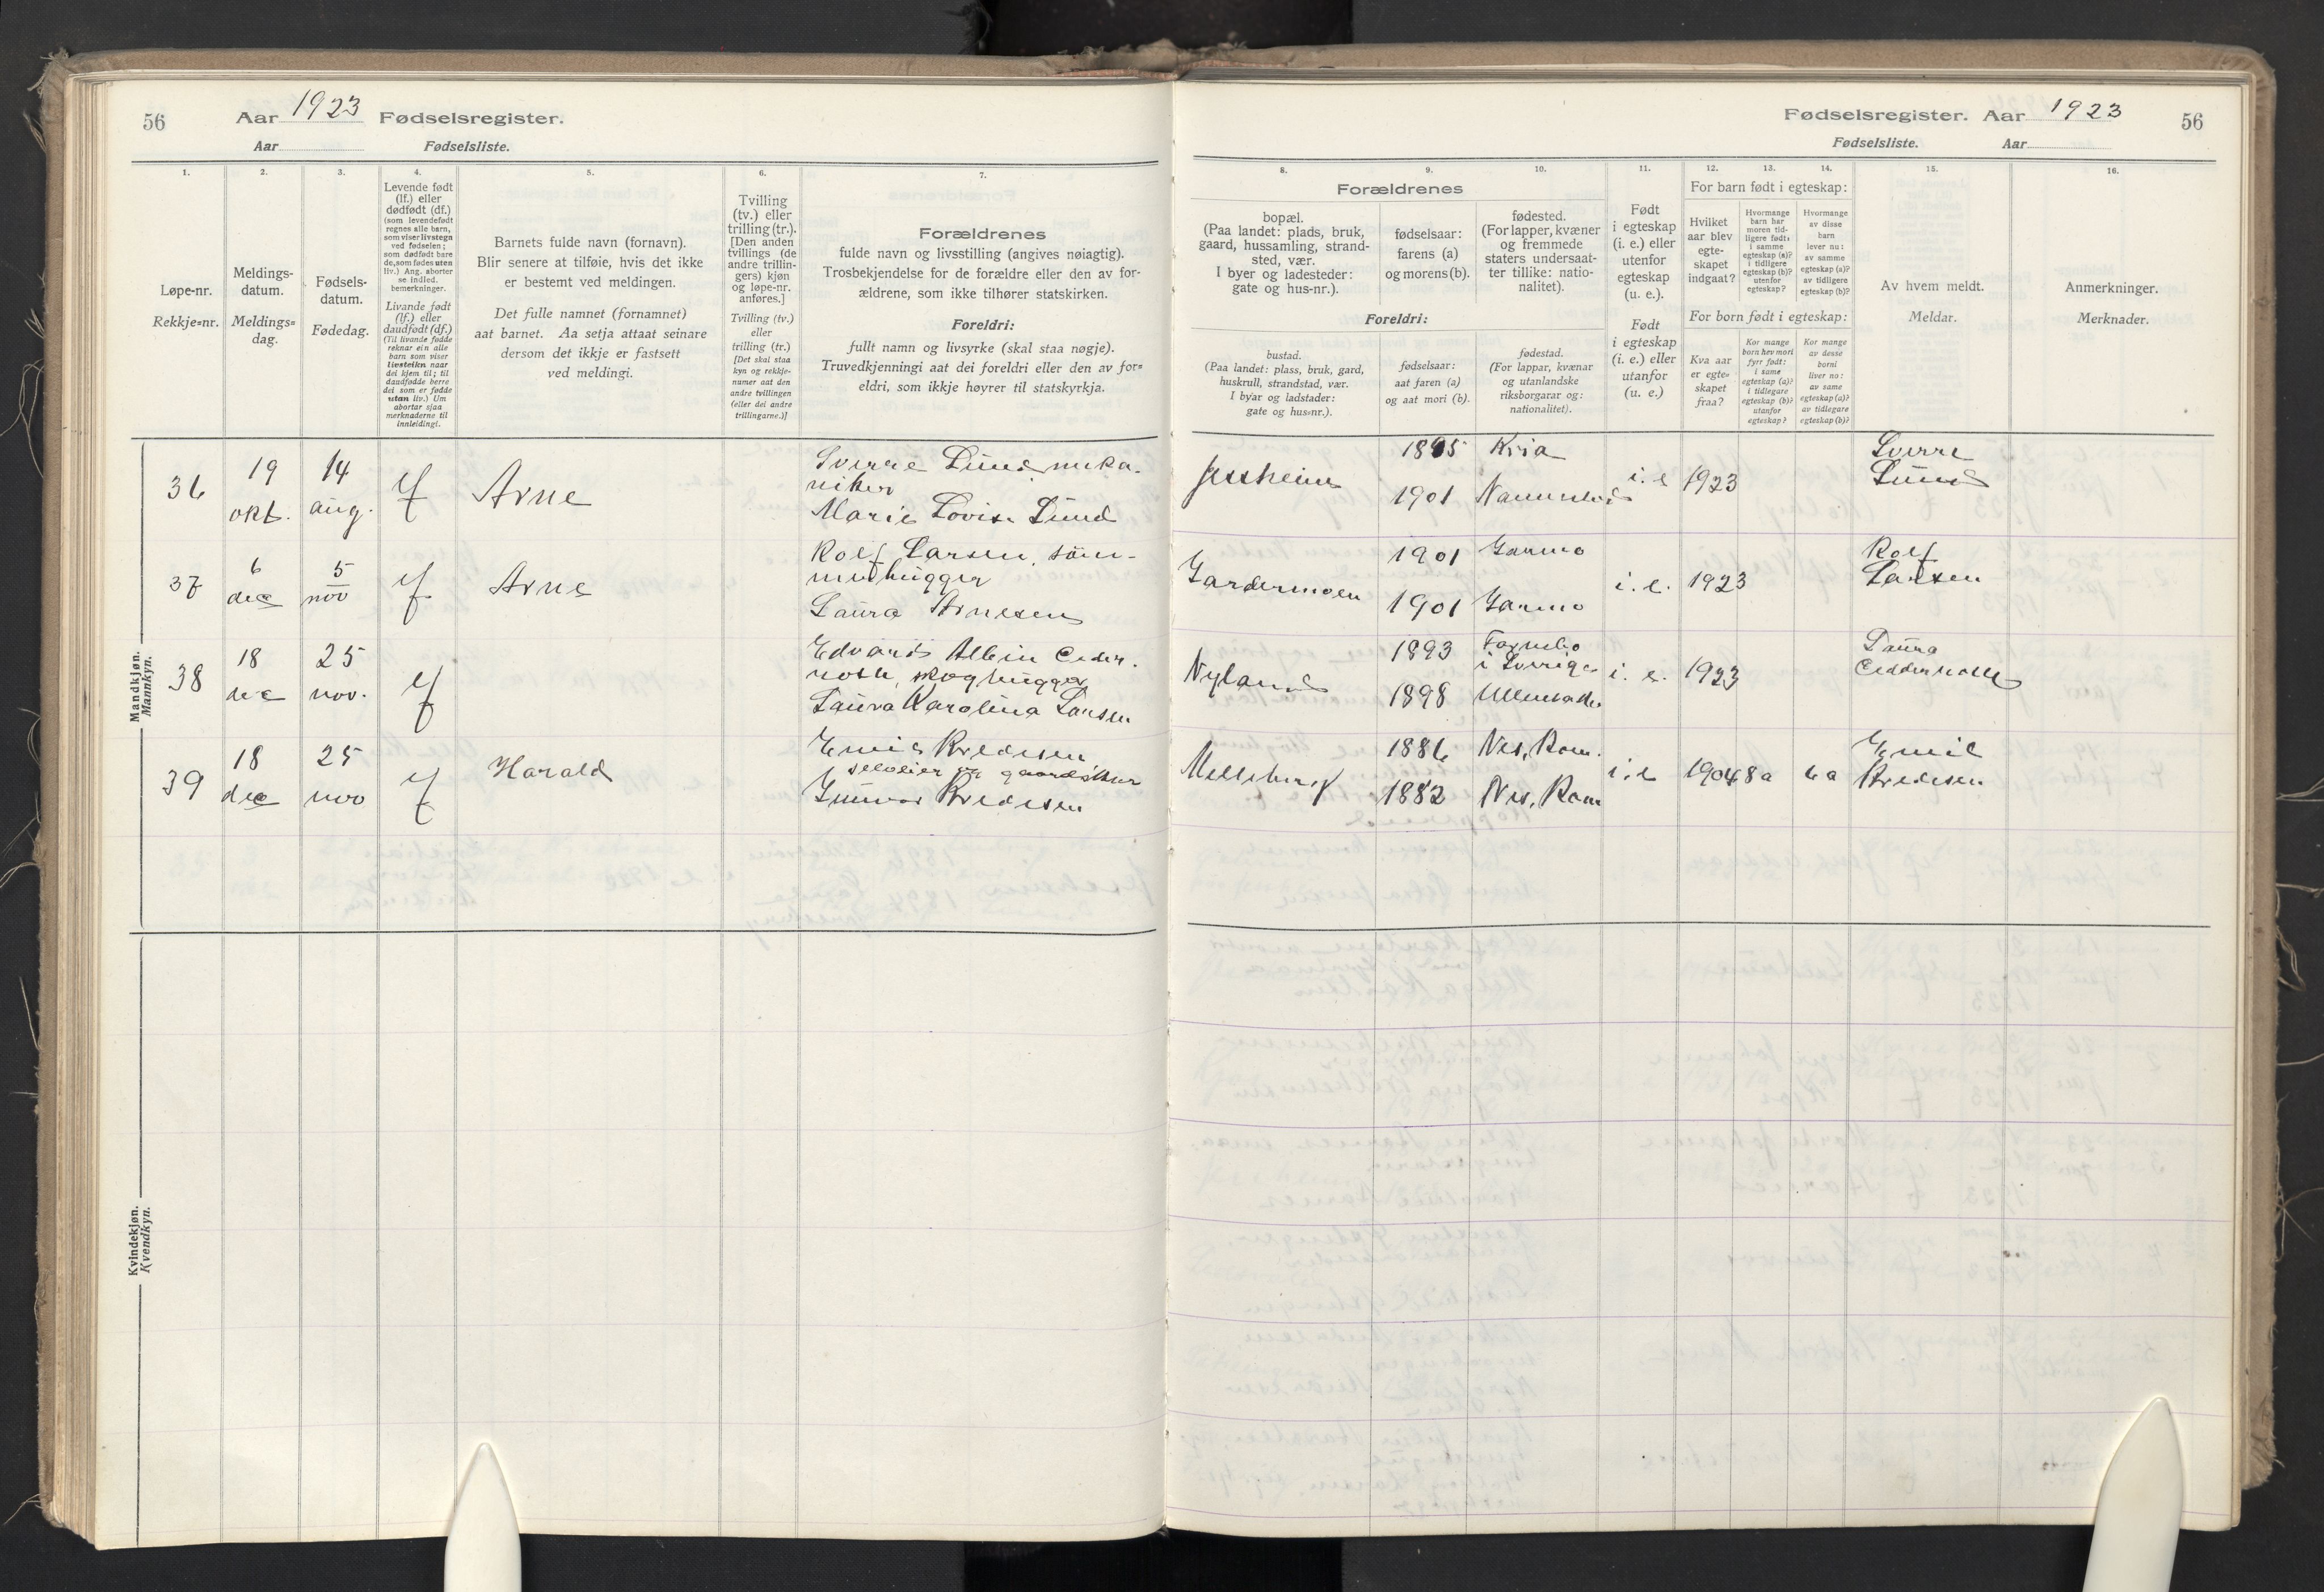 56
Aar 1923 Fødselsregister.
Aar Fødselsliste.
1. 2. 3. 4. 5. 6. 7.
Løpe-nr.
Rekkje=nr.
Meldings-
datum.
Meldings=
dag.
Fødsels-
datum.
Fødedag.
Levende født
(lf.) eller
dødfødt (df.)
(som levendefødt
regnes alle barn,
som viser livstegn
ved fødselen;
som dødfødt bare
de, som fødes uten
liv.) Ang. aborter
se indled.
bemerkninger.
Livande født
(lf.) eller
daudfødt (df.)
(Til livande fødde
reknar ein alle
barn som viser
livsteikn naar
dei kjem til; til
daudfødde berre
dei som er fødde
utan liv.) Um
abortar sjaa
merknaderne til
innleidingi.
Barnets fulde navn (fornavn).
Blir senere at tilføie, hvis det ikke
er bestemt ved meldingen.
Det fulle namnet (fornamnet)
aat barnet. Aa setja attaat seinare
dersom det ikkje er fastsett
ved meldingi.
Tvilling
(tv.) eller
trilling (tr.).
[Den anden
tvillings (de
andre trillin-
gers) kjøn
og løpe-nr.
anføres.]
Tvilling (tv.)
eller
trilling (tr.)
[Det skal staa
kyn og rekkje-
numer aat den
andre tvillingen
(eller dei andre
trillingarne.)]
Forældrenes
fulde navn og livsstilling (angives nøiagtig).
Trosbekjendelse for de forældre eller den av for-
ældrene, som ikke tilhører statskirken.
Foreldri:
fullt namn og livsyrke (skal staa nøgje).
Truvedkjenningi aat dei foreldri eller den av for=
eldri, som ikkje høyrer til statskyrkja.
Mandkjøn.
Mannkyn.
36 19 okt. 14 aug. lf Arne
Sverre Lund meka-
niker
Marie Lovise Lund
37 6 dec 5 nov lf Arne
Rolf Larsen, tøm-
merhugger
Laura Arnesen
38 18 dec 25 nov. lf
Edvard Albin Ceder-
, skoghugger
Laura Karolina Larsen
39 18 dec 25 nov lf Harald
Emil Bredesen
selveier og gaardbruker
Gunvor Bredesen
Kvindekjøn.
Kvendkyn.
Fødselsregister. Aar 1923 56
Fødselsliste. Aar
8. 9. 10. 11. 12. 13. 14. 15. 16.
Forældrenes
bopæl.
(Paa landet: plads, bruk,
gaard, hussamling, strand-
sted, vær.
I byer og ladesteder:
gate og hus-nr.).
fødselsaar:
farens (a)
og morens (b).
fødested.
(For lapper, kvæner
og fremmede
staters undersaat-
ter tillike: natio-
nalitet).
Foreldri:
bustad.
(Paa landet: plass, bruk, gard,
huskrull, strandstad, vær.
I byar og ladstader:
gate og hus=nr.).
fødselsaar:
aat faren (a)
og aat mori (b).
fødestad.
(For lappar, kvænar
og utanlandske
riksborgarar og:
nationalitet).
Født
i egteskap
(i. e.) eller
utenfor
egteskap
(u. e.).
Født
i egteskap
(i. e.) eller
utanfor
(u. e.)
For barn født i egteskap:
Hvilket
aar blev
egte-
skapet
indgaat?
Hvormange
barn har
moren tid-
ligere født:
i samme
egteskap (a)?
i tidligere
egteskap (b)?
utenfor
egteskap?
Hvormange
av disse
barn
lever nu:
av samme
egteskap (a)?
av tidligere
egteskap (b)?
For born født i egteskap:
Kva aar
er egte=
skapet
fraa?
Kor mange
born hev mori
fyrr født:
i same
egteskap (a)?
i tidlegare
egteskap (b)?
utanfor
egteskap?
Kor mange
av desse
borni
liver no:
av same
egteskap (a)?
av tidlegare
egteskap (b)?
Av hvem meldt.
Meldar.
Anmerkninger.
Merknader.
Jessheim 1895 Kria
1901 Nannestad
i. e 1923 Sverre
Lund
Gardermoen 1901 Garmo
1901 Garmo
i. e. 1923 Rolf
Larsen
Nyland 1893
i Sverige
1898 Ullensaker
i. e. 1923 Laura
1886 Nes, Rom.
1882 Nes, Rom
i. e 1904 8a 6a Emil
Bredesen